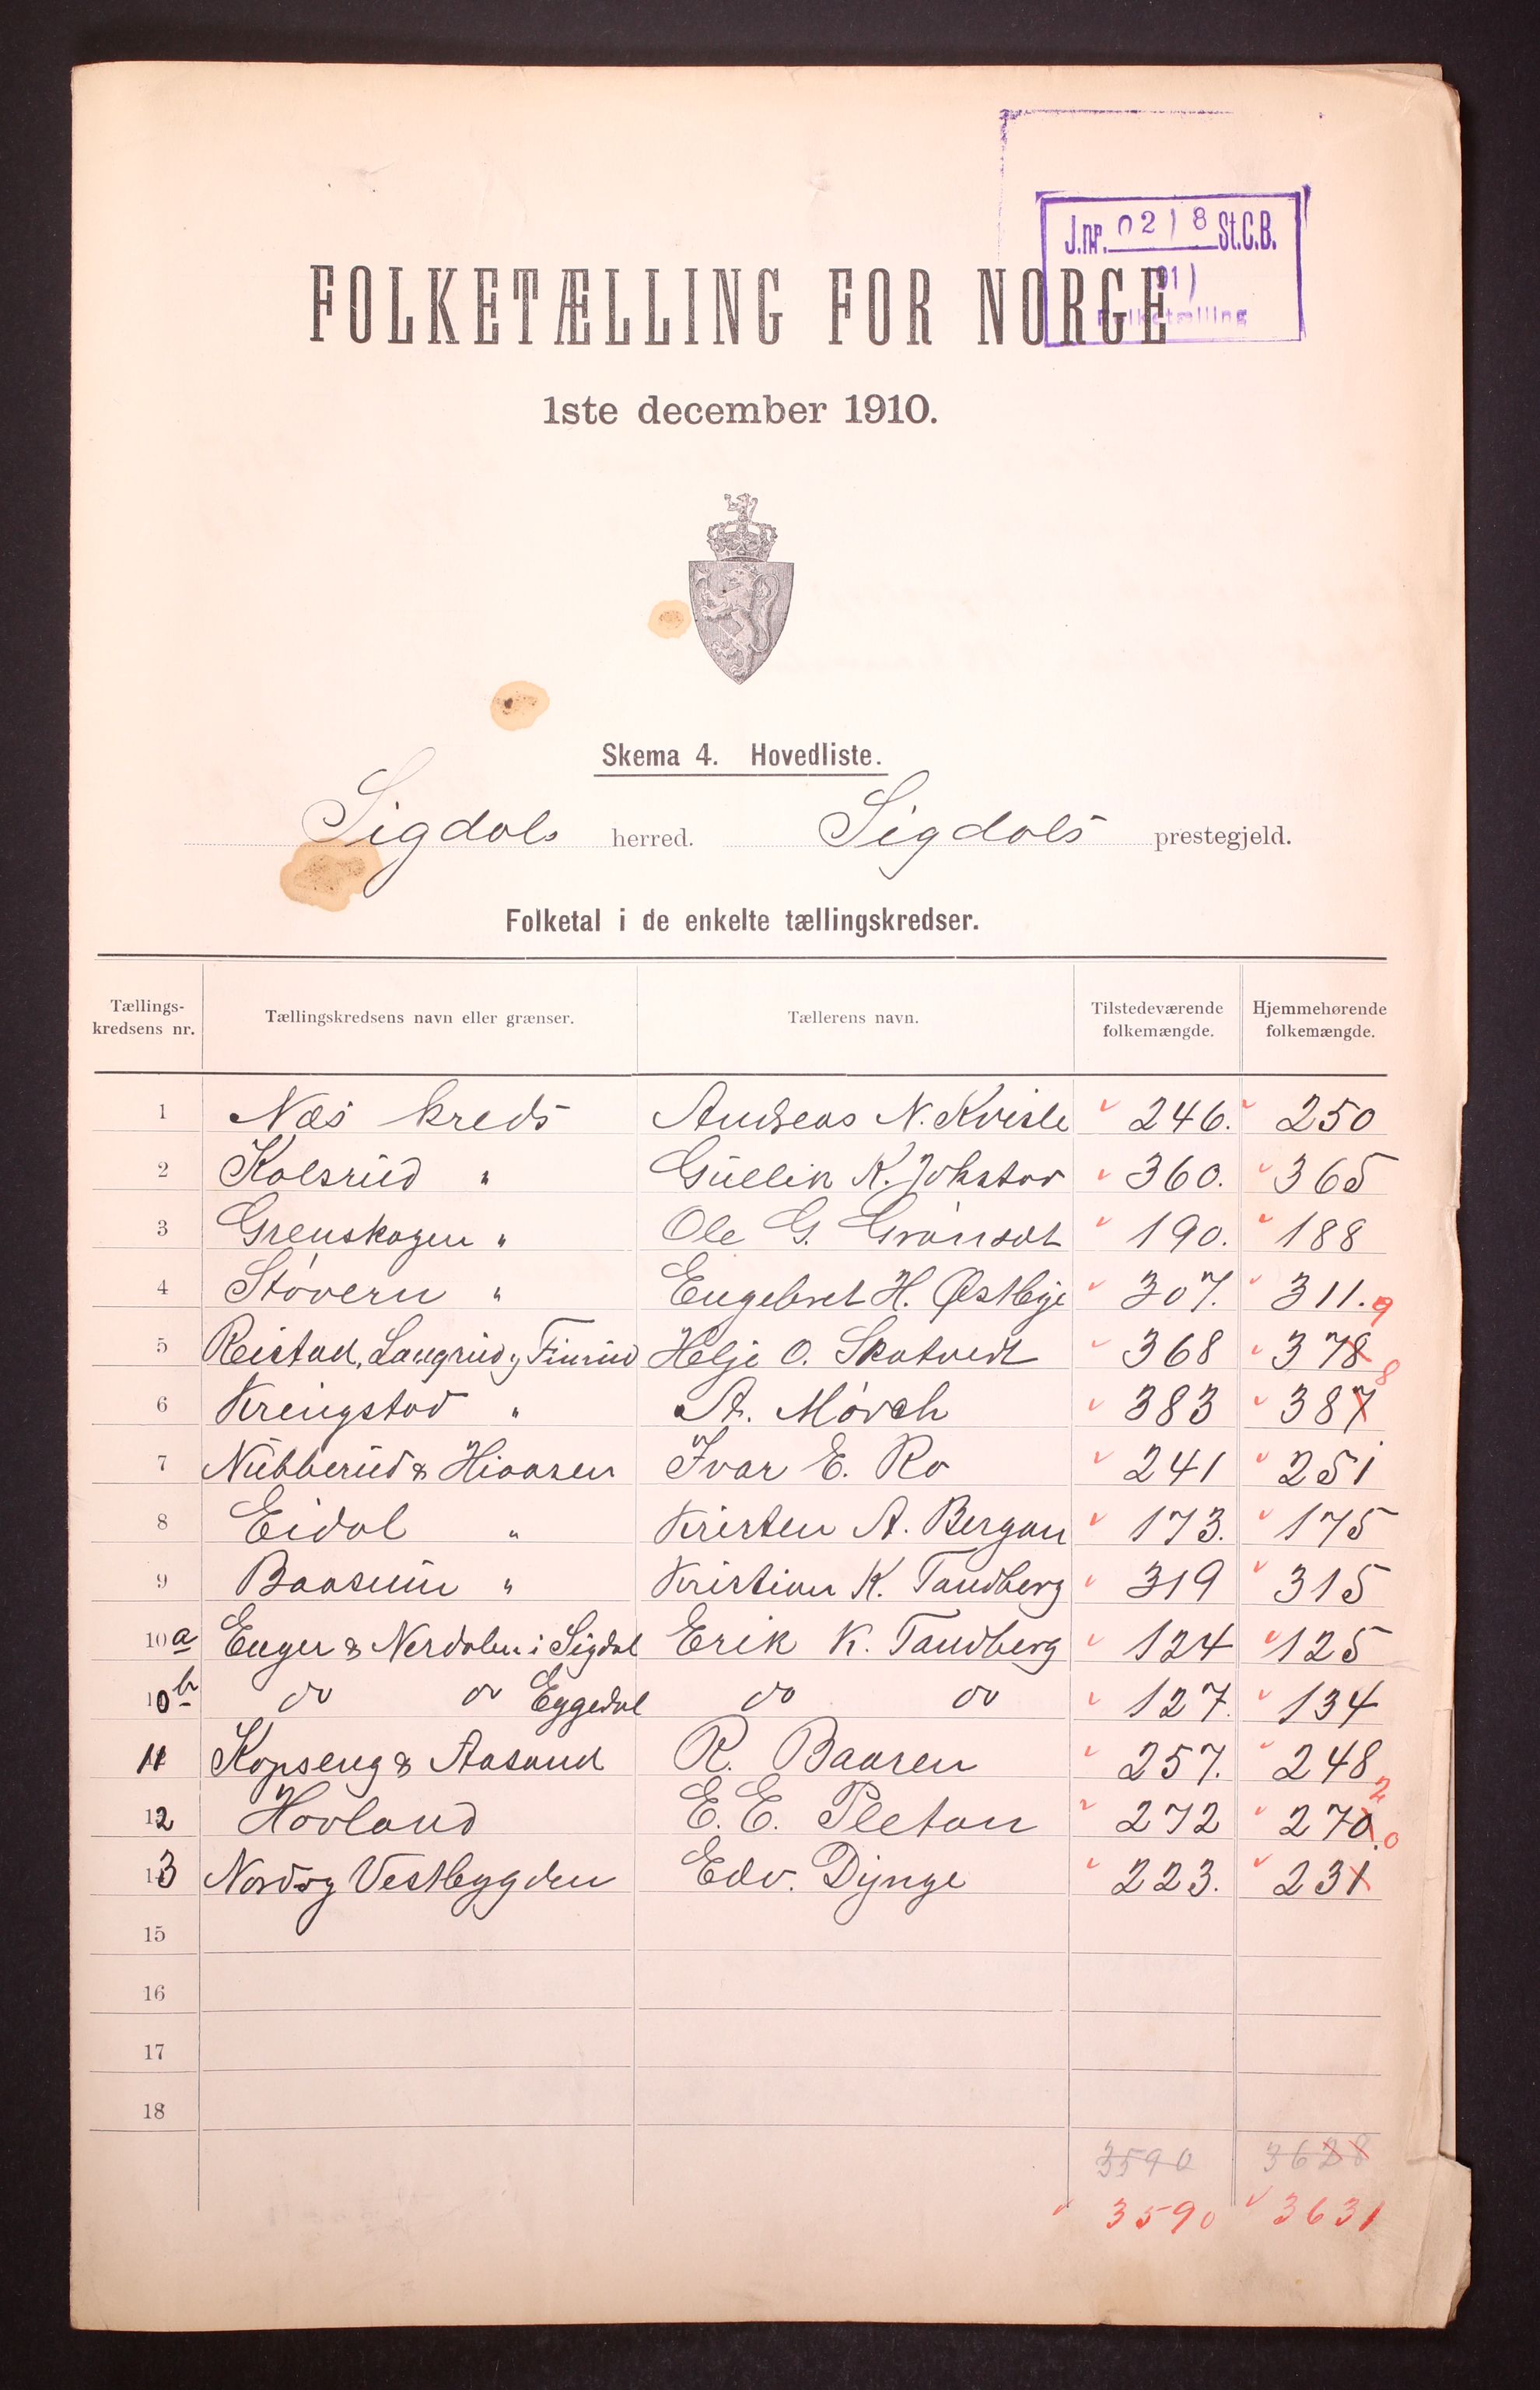 J.nr. 0218 St.C.B.
FOLKETÆLLING FOR NORGE
1ste december 1910.
Skema 4. Hovedliste.
Sigdals herred. Sigdals prestegjeld.
Folketal i de enkelte tællingskredser.
Tællings-kredsens nr. Tællingskredsens navn eller grænser. Tællerens navn. Tilstedeværende folkemængde. Hjemmehørende folkemængde.
1 Næs kreds Andreas N. Kvisle 246. 250
2 Kolsrud " Gullik K. Jokstad 360. 365
3 Grenskogen " Ole G. 190. 188
4 Støvern " Engebret H. Østbye 307. 311.
5 Reistad, Langrud og Finrud Helje O. Skatvedt 368 378 9
6 Kringstad " A. Mørch 383 387 8
7 Nubberud & Hiaasen Ivar E. Ro 241 251
8 Eidal " Kristen A. Bergan 173. 175
9 Baasum " Kristian K. Tandberg 319 315
10a Enger & Nerdalen i Sigdal Erik K. Tandberg 124 125
10b do do Eggedal do do 127. 134
11 Kopseng & Aasand R. Baasen 257. 248
12 Hovland E. E. Pletan 272 270. 2
13 Nord og Vestbygden Edv. Dynge 223. 231 0
15
16
17
18
3590 3628
3590 3631